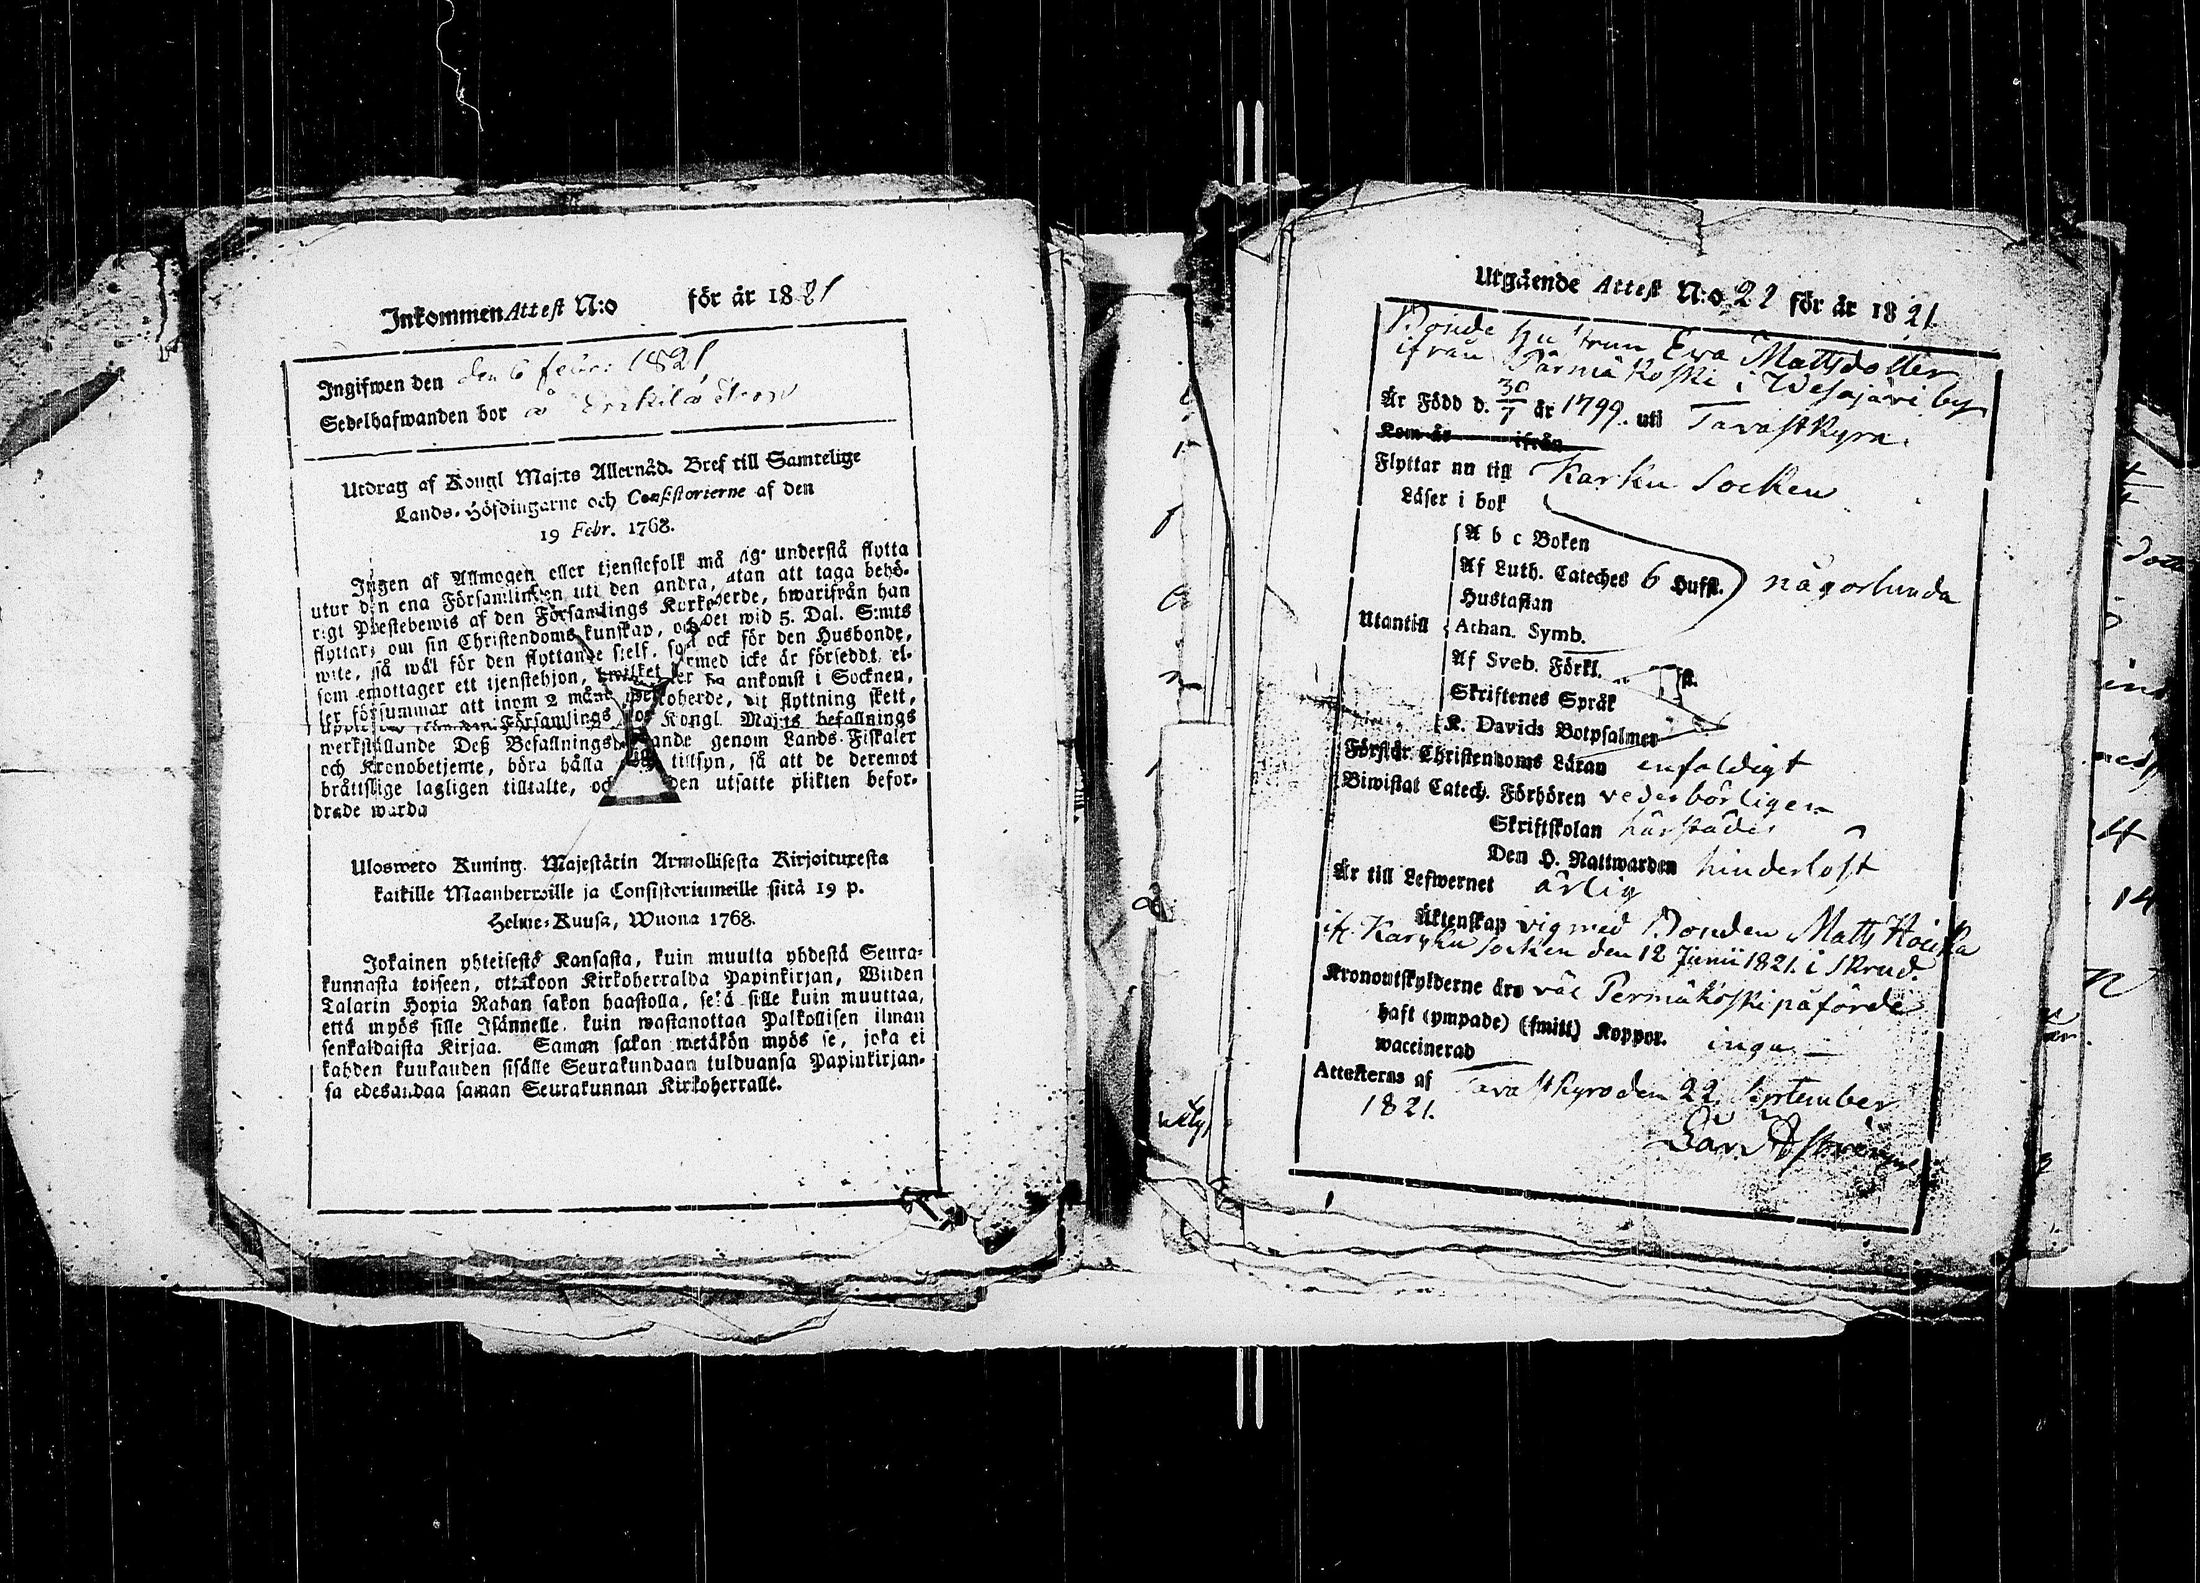 Inkommen Attest N:o för år 1821
Ingifwen den den 6 febr. 1821
Sedelhafwanden bor å
Utdrag af Kongl Maj:ts Allernåd. Bref till Samtelige
Lands-Höfdingarne och Consistorierne af den
19 Febr. 1768.
Ingen af Allmogen eller tjenstefolk må sig understå flytta
utur den ena Församlingen uti den andra, utan att taga behö-
rigt Prestebewis af den Församlings Kyrkoherde, hwarifrån han
flyttar, om sin Christendoms kunskap, och det wid 5. Dal. S:mts
wite, så wäl för den flyttande sjelf, som ock för den Husbonde,
som emottager ett tjenstehjon, hwilket dermed icke är försedt, el-
ler försummar att inom 2 måna ankomst i Socknen,
Församlings flyttning skett,
werkställande Deß Befallnings Kongl Maj:ts befallnings
och Kronobetjente, böra hålla genom Lands-Fiskaler
bråttslige lagligen tilltalte, och tillsyn, så att de deremot
den utsatte plikten befor-
drade warda
Ulosweto Kuning. Majestätin Armollisesta Kirjoituxesta
kaikille Maanherroille ja Consistoriumeille siitä 19 p.
Helme-Kuusa, Wuona 1768.
Jokainen yhteisestä Kansasta, kuin muutta yhdestä Seura-
kunnasta toiseen, ottakoon Kirkoherralda Papinkirjan, Wiiden
Talarin Hopia Rahan sakon haastolla, sekä sille kuin muuttaa,
että myös sille Isännelle, kuin wastanottaa Palkollisen ilman
senkaldaista Kirjaa. Saman sakon wetäkön myös se, joka ei
kahden kuukauden sisälle Seurakundaan tulduansa Papinkirjan-
sa edesandaa saman Seurakunnan Kirkoherralle.
Utgående Attest N:o 22 för år 1821
Bonde hustrun Ewa Mattsdotter
ifrån Pärmäkoski i Wesajärvi by
Är Född d. 30/7 år 1799. uti Tavastkyro.
Kom år ifrån
Flyttar nu till Karku Socken
Läser i bok
A b c Boken
Af Luth. Cateches 6 Hufst. någorlunda
Hustaflan
Utantill Athan. Symb.
Af Sveb. Förkl.
Skriftenes Språk
K. Davids Botpsalmer
Förstår Christendoms Läran enfaldigt
Biwistat Catech. Förhören vederbörligen
Skriftskolan härstädes
Den H. Nattwarden hinderlöst
Är till Lefwernet ärlig
Äktenskap vig med Bonden Matts
socken den 12 Junii 1821. i
Kronoutskylderne äro påförde
haft (ympade) (smitt) Koppor. inga
waccinerad
Attesteras af Tavastkyro den 22 September
1821.